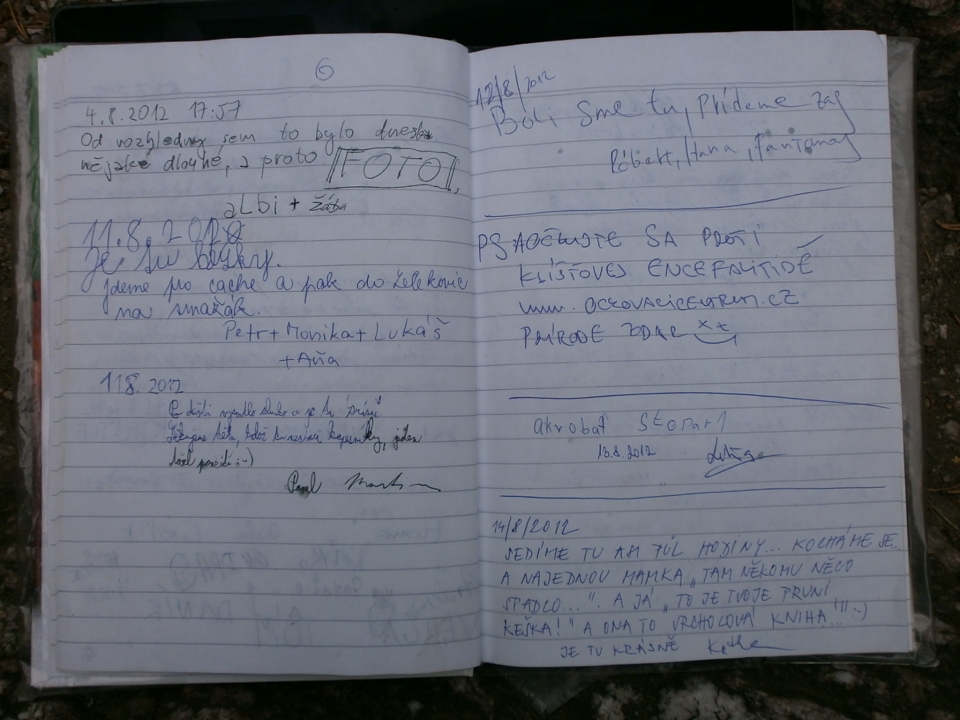 6
4.8.2012 17:57
Od rozhledny sem to bylo dneska
nějaké dlouhé, a proto FOTO!
aLbi + žába
11.8.2012
Je su
jdeme pro cache a pak do Želekovic
na smažák.
Petr + Monika + Lukáš
+ Aňa
11.8. 2012
Po dešti slunko a je tu
:-)
Pavel
12/8/2012
Boli sme tu, prídeme zas
Róbert, Hana, Fantomas
PS AOČKUJTE SA PROTI
KLIŠŤOVEJ ENCEFALITIDĚ
www.OCKOVACICENTRUM.CZ
PŘÍRODE ZDAR
akrobat Stopař 1
13.8.2012
14/8/2012
SEDÍME TU ASI PŮL HODINY... KOCHÁME SE
A NAJEDNOU MAMKA „TAM NĚKOMU NĚCO
SPADLO...". A JÁ „TO JE TVOJE PRVNÍ
KEŠKA!" A ONA TO VRCHOLOVÁ KNIHA!!! :-)
JE TU KRÁSNĚ